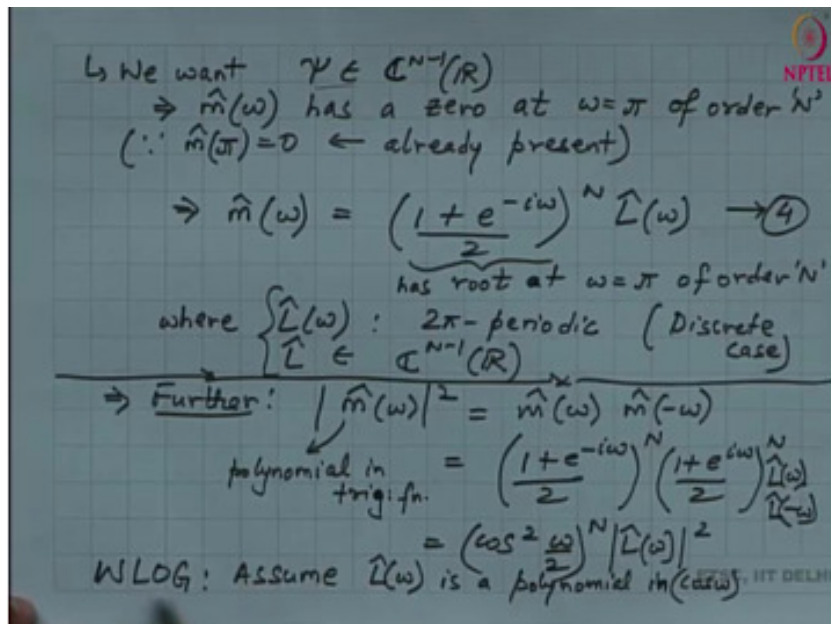 ↳ We want ψ ∈ ℂ^{N-1}(ℝ)
NPTEL
⇒ m̂(ω) has a zero at ω=π of order 'N'
(∵ m̂(π)=0 ← already present)
⇒ m̂(ω) = ((1 + e^{-iω})/2)^N L̂(ω) → ④
has root at ω=π of order 'N'
where { L̂(ω) : 2π-periodic (Discrete case)
L̂ ∈ ℂ^{N-1}(ℝ)
⇒ Further: |m̂(ω)|² = m̂(ω) m̂(-ω)
polynomial in trig. fn. = ((1+e^{-iω})/2)^N ((1+e^{iω})/2)^N L̂(ω) L̂(-ω)
= (cos² ω/2)^N |L̂(ω)|²
WLOG: Assume L̂(ω) is a polynomial in (cosω)
, IIT DELH